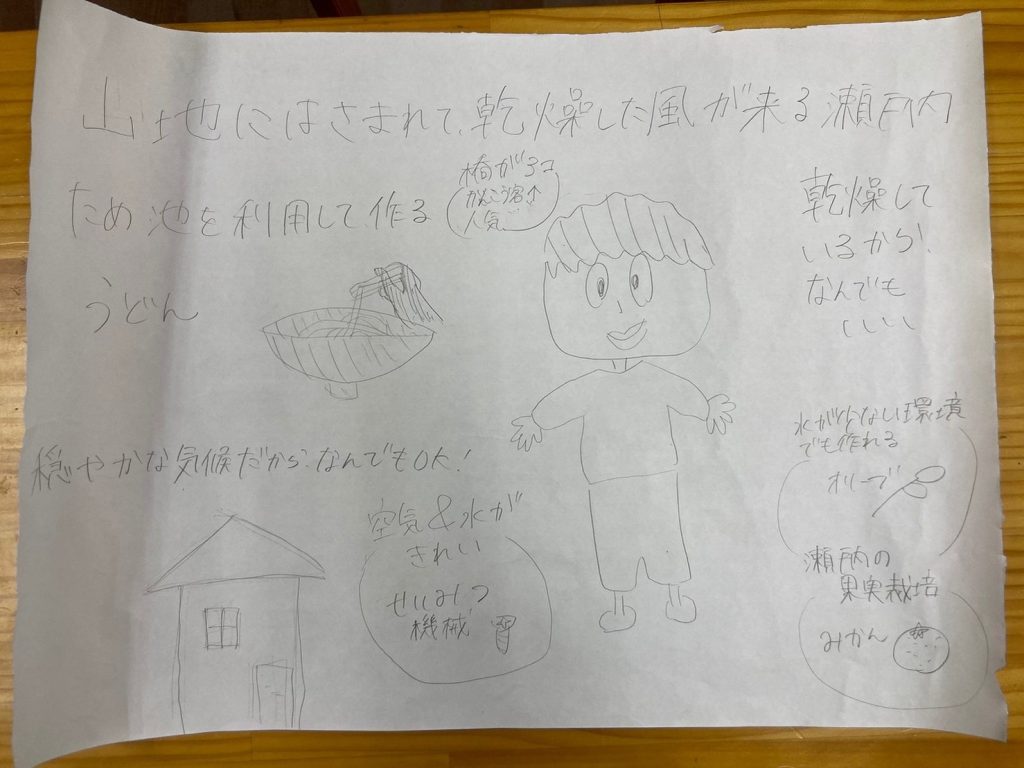 山地にはさまれて、乾燥した風が来る瀬戸内
ため池を利用して、作る
うどん
橋が3コ
かんこう客↑
人気
乾燥して
いるから、
なんでも
いいい
穏やかな気候だから、なんでもOK!
空気&水が
きれい
せいみつ
機械
水が少ない環境
でも作れる
オリーブ
瀬戸内の
果実栽培
みかん